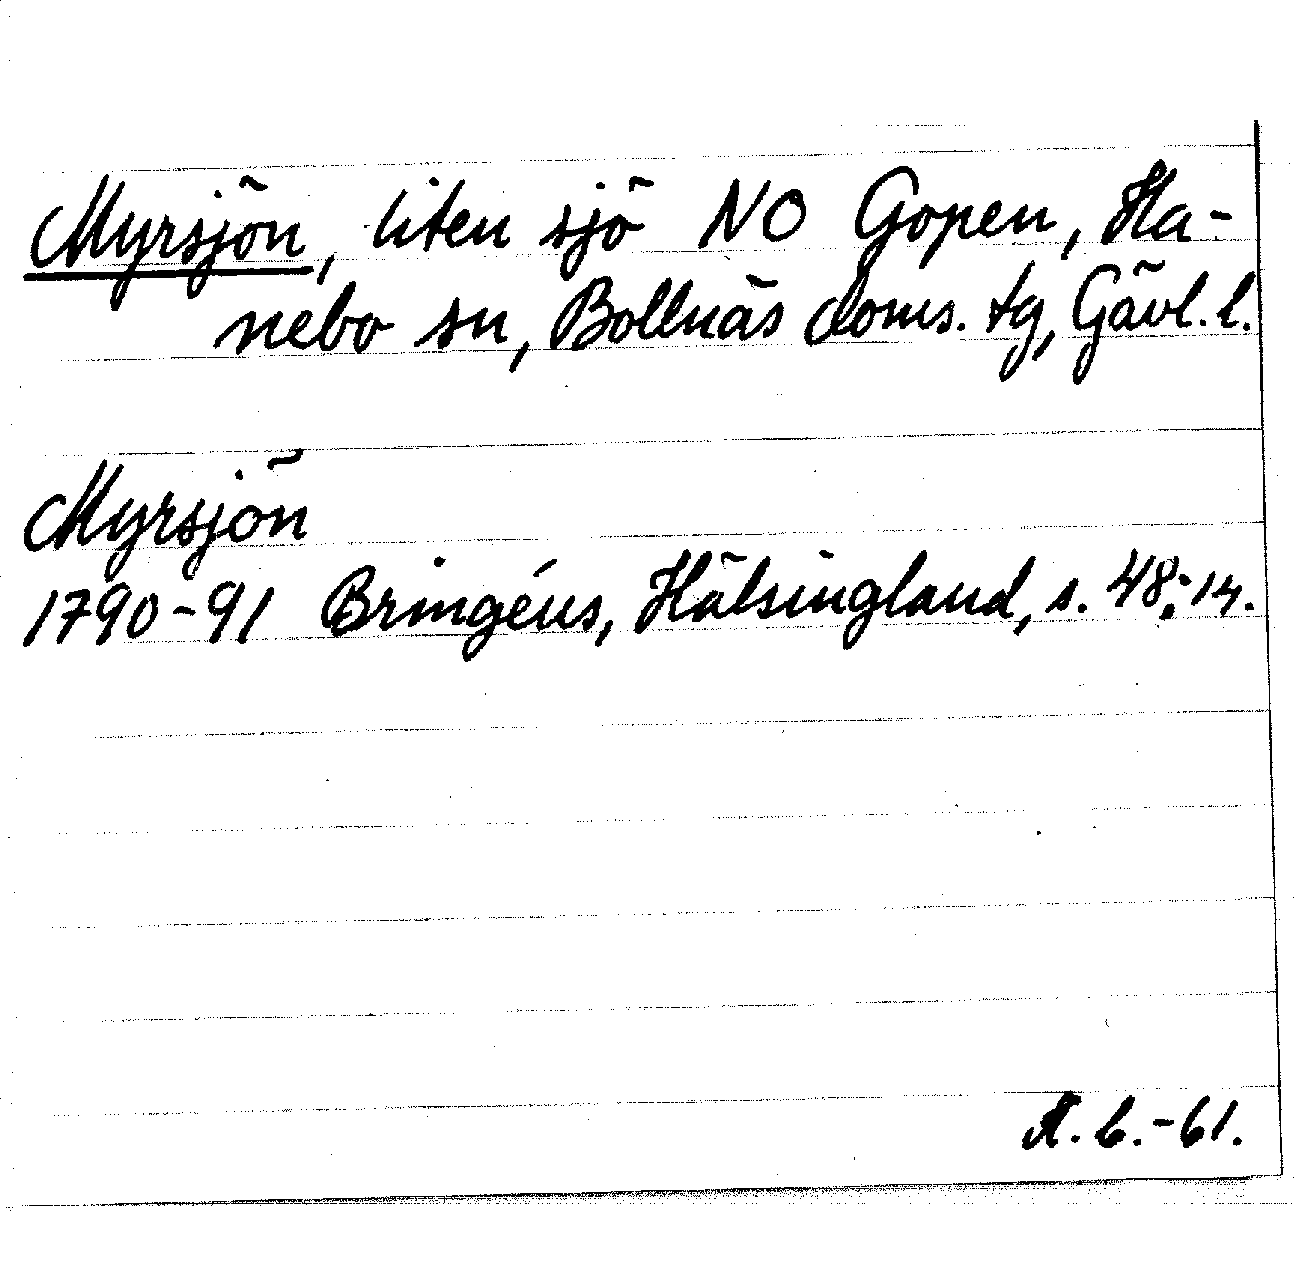 Myrsjön, liten sjö NO Gopen, Ha-
nebo sn, Bollnäs doms. tg, Gävl. l.
Myrsjön
1790-91 Bringéus, Hälsingland, s. 48;14.
-61.